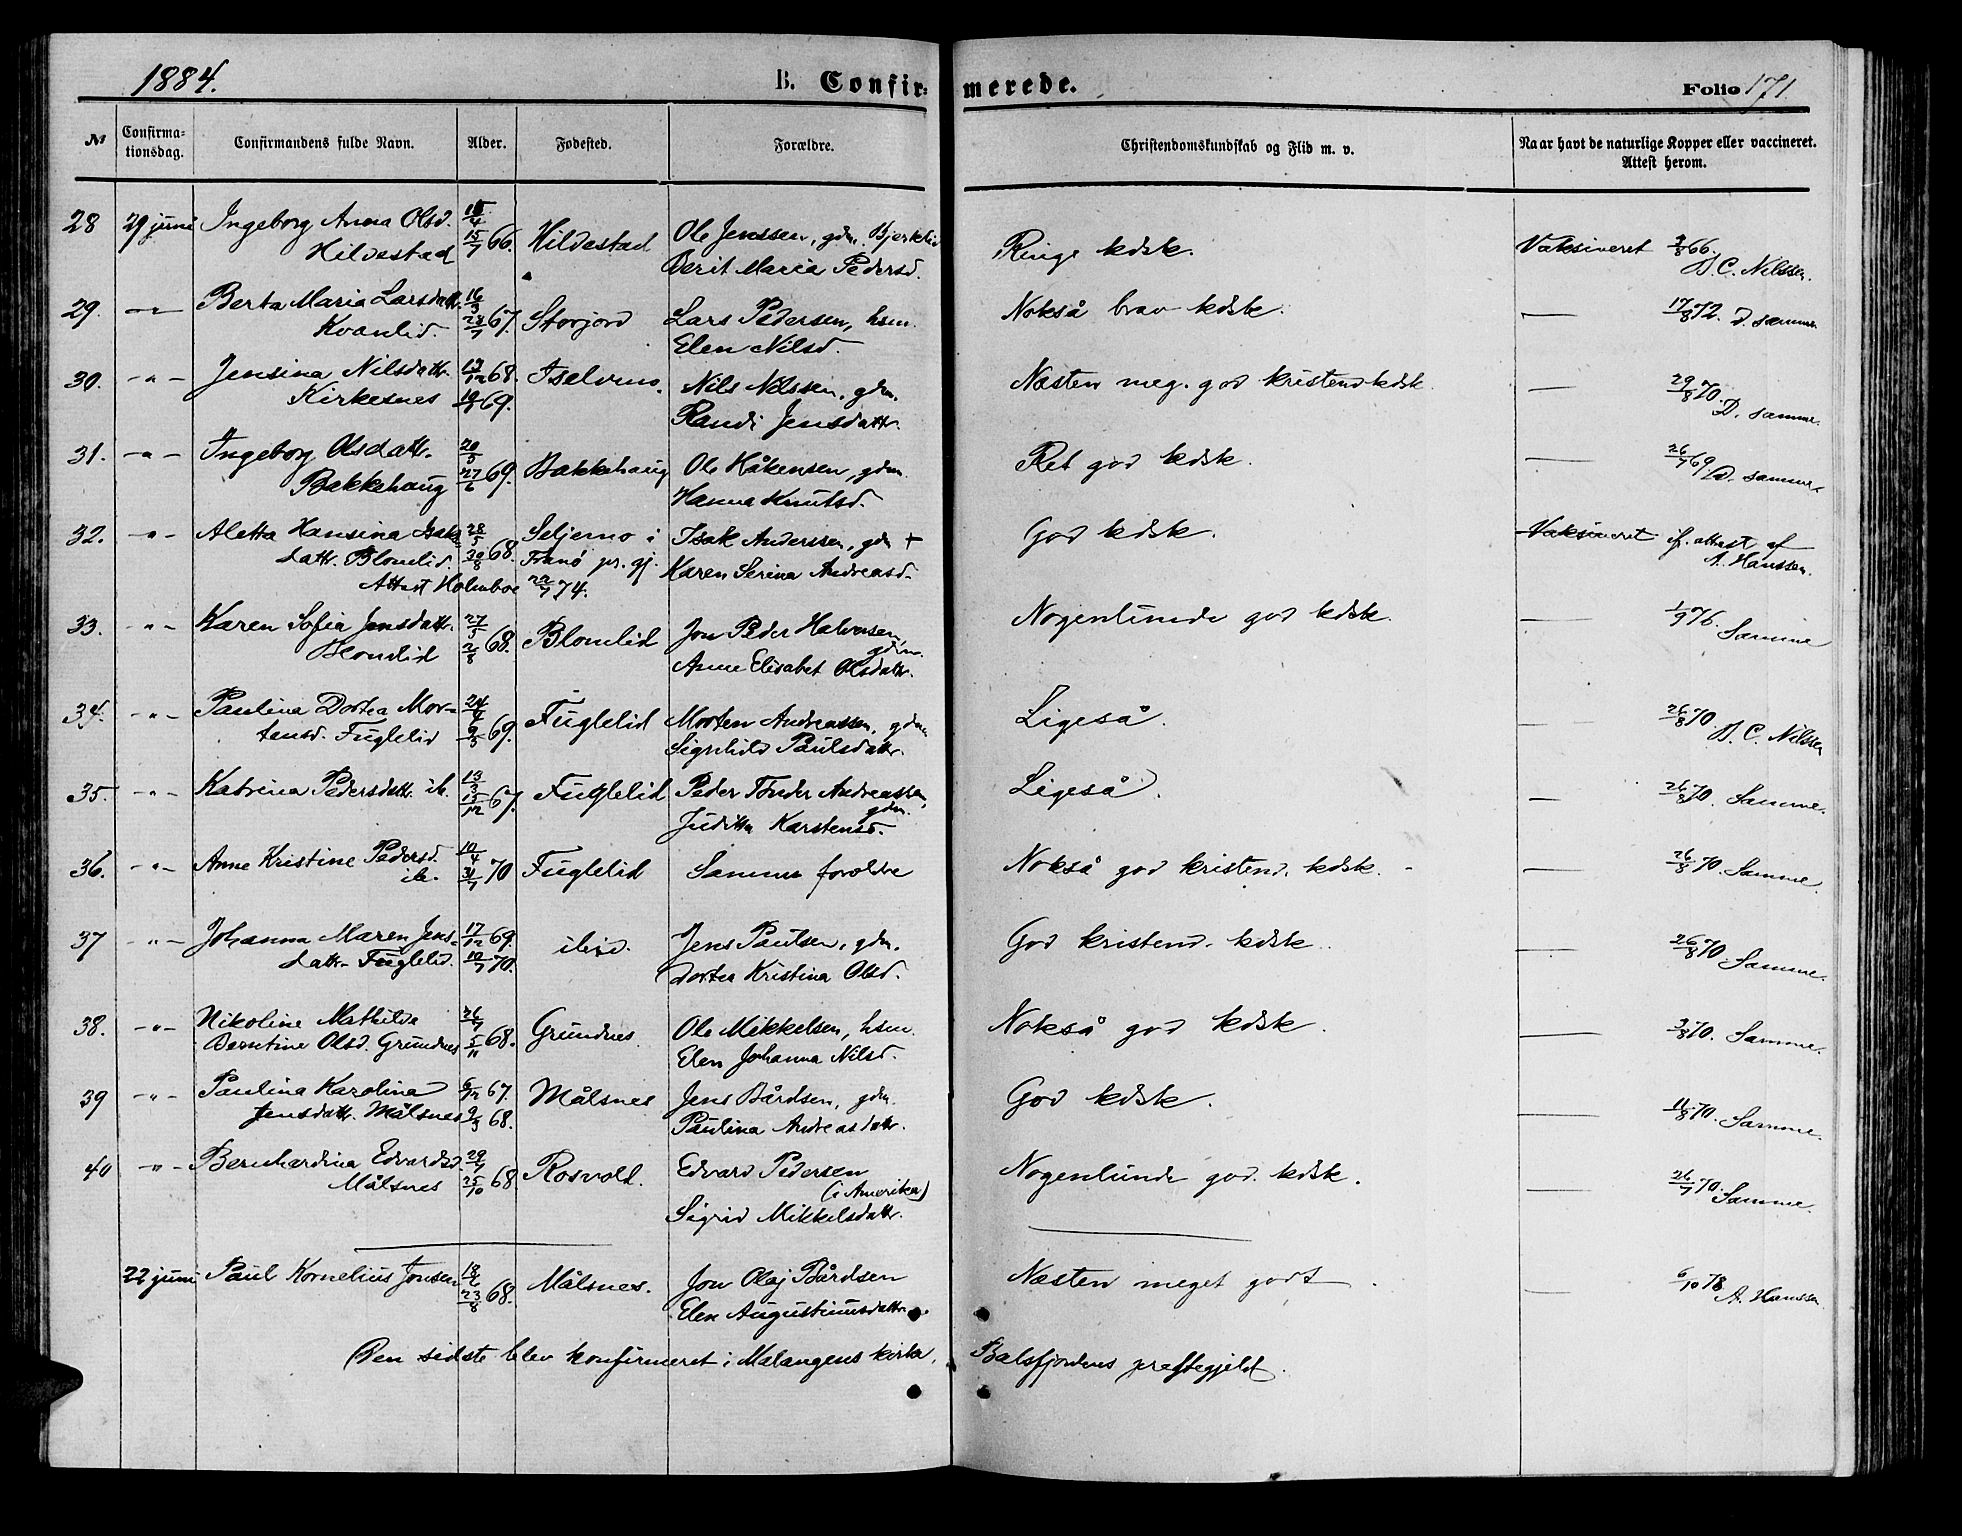 1884.
B. Confirmerede.
Folio 171
№ Confirmationsdag. Confirmandens fulde Navn. Alder. Fødested. Forældre. Christendomskundskab og Flid m. v. Naar havt de naturlige Kopper eller vaccineret. Attest herom.
28 29 juni Ingeborg Anna Olsd. Hildestad 15/7 66. Hildestad Ole Jenssen, gdm. Bjerklid Berit Maria Pedersd. Ringe kdsk. Vaksineret 66. J. C. Nilssen.
29. -"- Berta Maria Larsdattr. Kvanlid. 16/3 28/7 67. Storjord Lars Pedersen, hsm. Elen Nilsd. Nokså brav kdsk. — 17/8 72. D. samme.
30. -"- Jensina Nilsdattr. Kirkesnes 13/12 68. 69. Iselvmo. Nils Nilssen, gdm. Randi Jensdattr. Næsten meg. god kristendkdsk. — 29/8 70. D. samme.
31. -"- Ingeborg Olsdattr. Bakkehaug 20/5 27/6 69. Bakkehaug Ole Håkensen, gdm. Hanna Knutsd. Ret god kdsk. — 26/7 69. D. samme.
32. -"- Aletta Hansina Isaksdattr. Blomlid. 28/5 30/8 68. Seljemo i Tranø pr. gj. Isak Anderssen, gdm + Karen Serina Andreasd. God kdsk. Vaksineret if. attest af A. Hanssen.
Attest Holmboe 22/7 74.
33. -"- Karen Sofia Jensdattr. Blomlid 27/5 2/8 68. Blomlid Jon Peder Halvorsen, gdm. Anne Elisabet Olsdattr. Nogenlunde god kdsk. — 1/9 76. Samme
34. -"- Paulina Dortea Mortensd. Fuglelid 24/4 9/5 69. Fuglelid Morten Andreassen, gdm Signhild Paulsdattr. Ligeså. — 26/8 70. J. C. Nilssen
35. -"- Katrina Pedersdattr. ib. 13/3 15/12 67. Fuglelid Peder Tønder Andreassen, gdm. Juditta Karstensd. Ligeså. — 26/8 70. Samme.
36. -"- Anne Kristine Pedersd. ib. 10/4 31/7 70 Fuglelid Samme forældre Nokså god kristend. kdsk. — 26/8 70. Samme.
37 -"- Johanna Maren Jensdattr. Fuglelid. 17/12 69. 10/7 70. ibid. Jens Paulsen, gdm. Dortea Kristina Olsd. God kristend. kdsk. — 26/8 70. Samme.
38. -"- Nikoline Mathilde Berntine Olsd. Grundnes 26/7 5/11 68. Grundnes Ole Mikkelsen, hsm Elen Johanna Nilsd. Nokså god kdsk. — 3/8 70. Samme.
39 -"- Paulina Karolina Jensdattr. Målsnes 6/12 67. 9/3 68. Målsnes Jens Bårdsen, gdm. Paulina Andreasdattr. God kdsk. — 11/8 70. Samme.
40 -"- Bernhardina Edvardsd. Målsnes 29/7 25/10 68 Rosvold. Edvard Pedersen (i Amerika) Sigrid Mikkelsdattr. Nogenlunde god kdsk. — 26/7 70. Samme.
22 juni Paul Kornelius Jonsen 23/8 68. Målsnes. Jon Olaj Bårdsen Elen Augustinusdattr. Næsten meget godt. — 6/10 78 A. Hanssen
Den sidste blev konfirmeret i Malangens kirke, Balsfjordens præstegjeld.